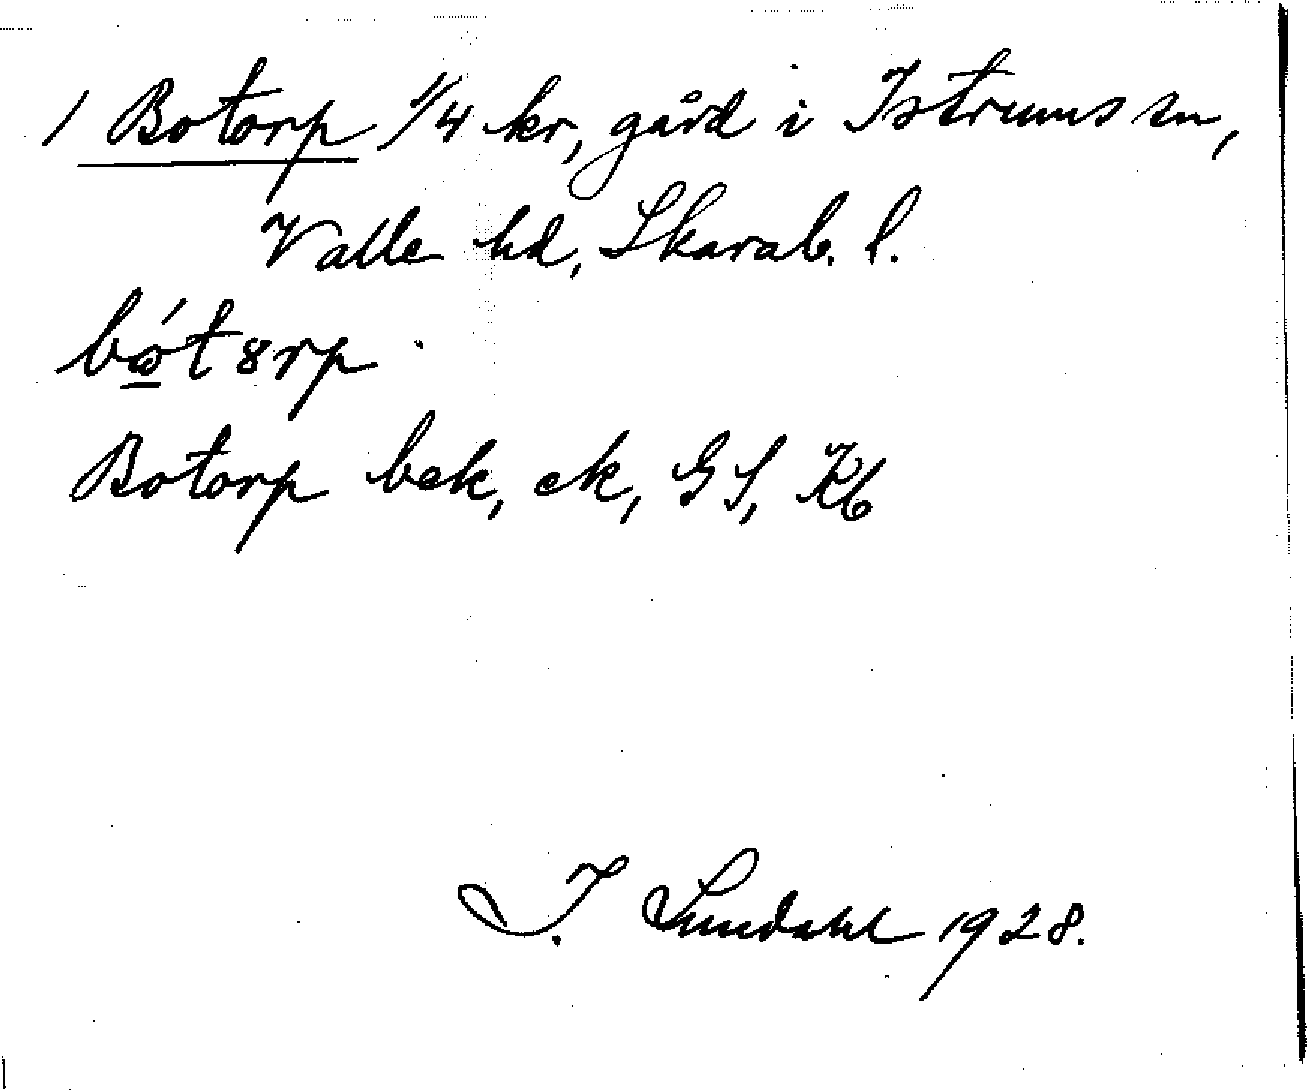 1 Botorp 1/4 kr, gård i Istrums sn,
Valle hd, Skarab. l.
bǿt8rp
Botorp bek, ek, GS, Kb
I. Lundahl 1928.